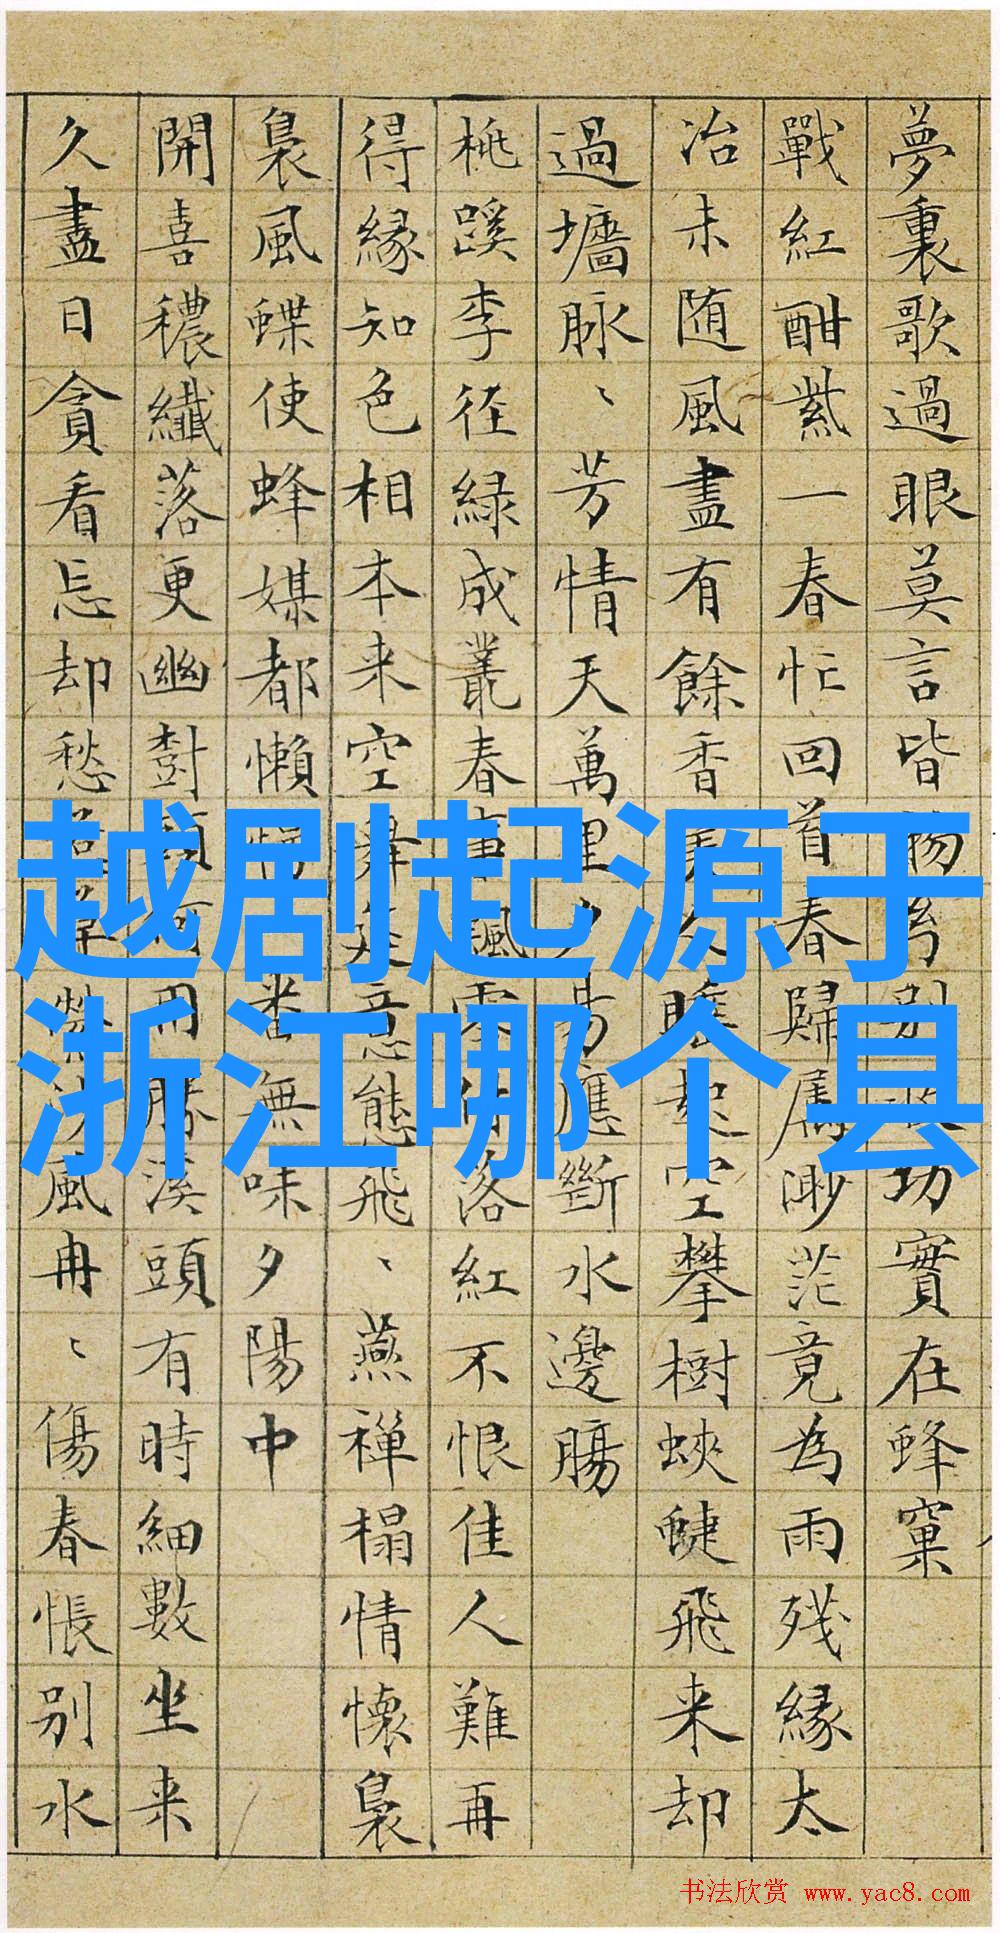 越剧起源于
浙江哪个县
夢裏歌過眼莫言皆物
功實在蜂窠
戰紅酣紫一春忙回首春歸属渺茫竟為雨残緣太
冶未随風盡有餘香
睡起空攀樹蛺蜨飛来却
過墻脉、芳情天萬里夕陽應斷水邊腸
桃蹊李径綠成叢春事
落紅不恨佳人難再
得緣知色相本来空舞
意態飛、燕禅榻情懷裊
裊風蝶使蜂媒都懶
番無味夕陽中
開喜穠纖落更幽對
用勝溪頭有時細數坐来
久盡日貪看忘却愁
風冉、傷春悵别水
书法欣赏 www.yac8.com